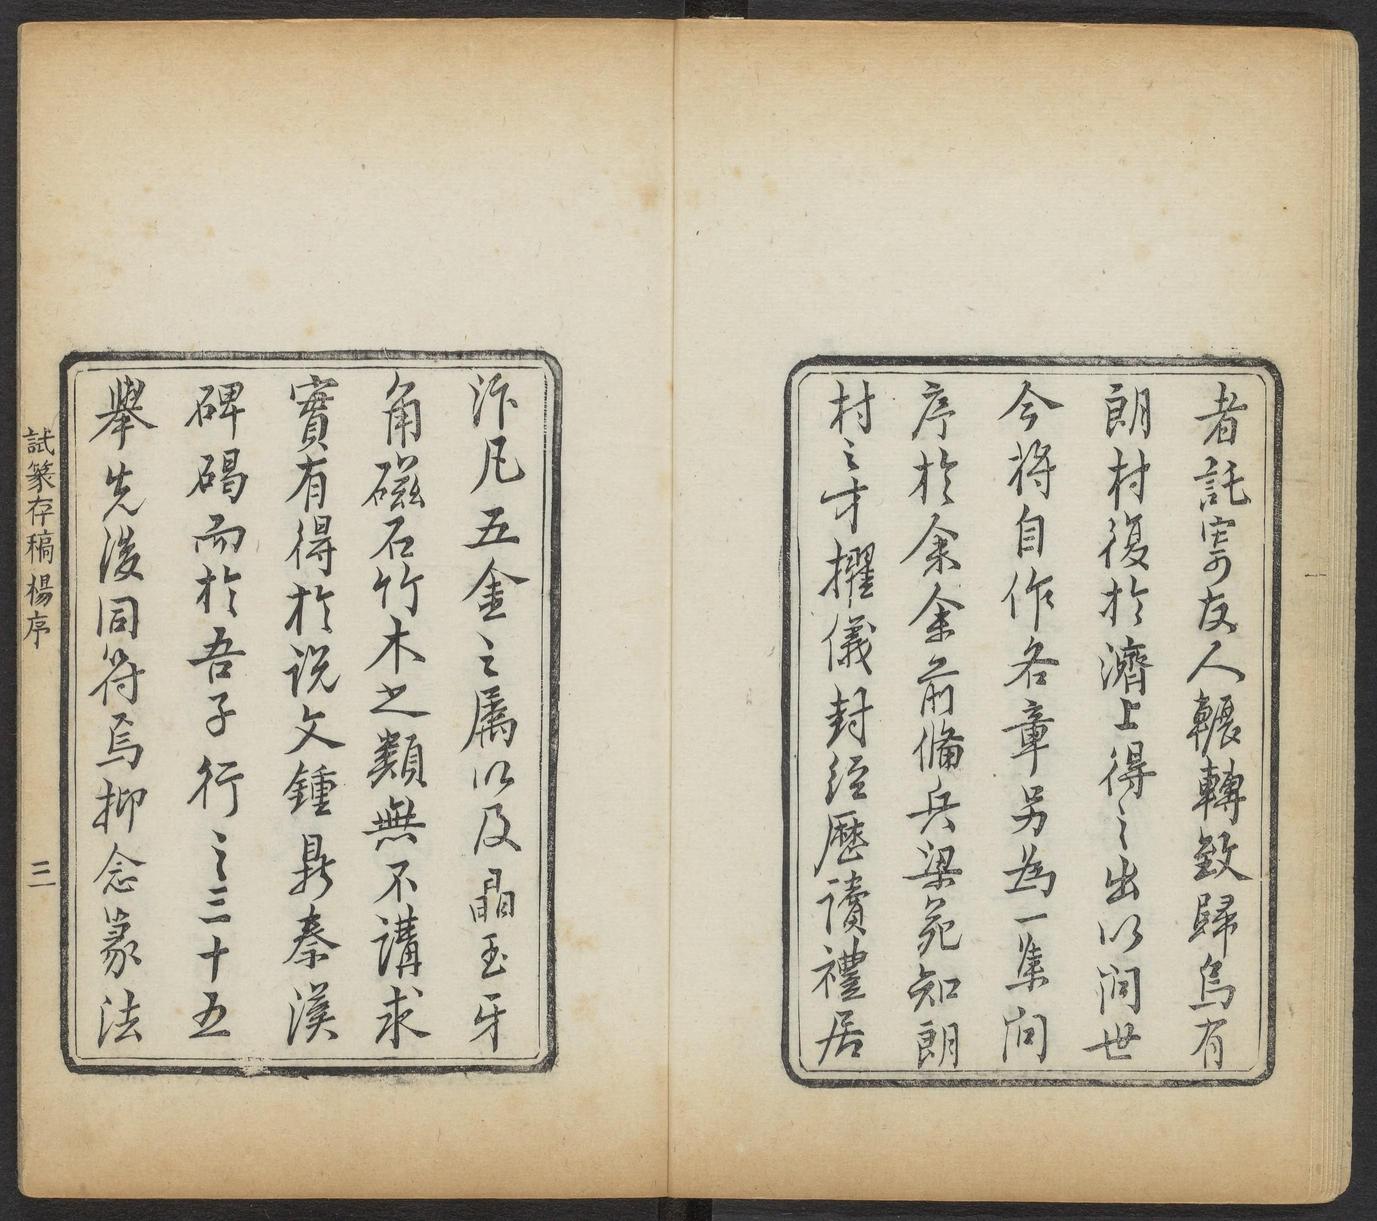 者託寄友人輾轉致歸烏有
朗村復於濟上得之出以問世
今將自作各章另為一集問
序於余余前備兵梁苑知朗
村之才擢儀封經歷讀禮居
汴凡五金之屬以及晶玉牙
角磁石竹木之類無不講求
實有得於説文鍾鼎秦漢
碑碣而於吾子行之三十五
舉先後同符焉抑念篆法
試篆存稿楊序
三